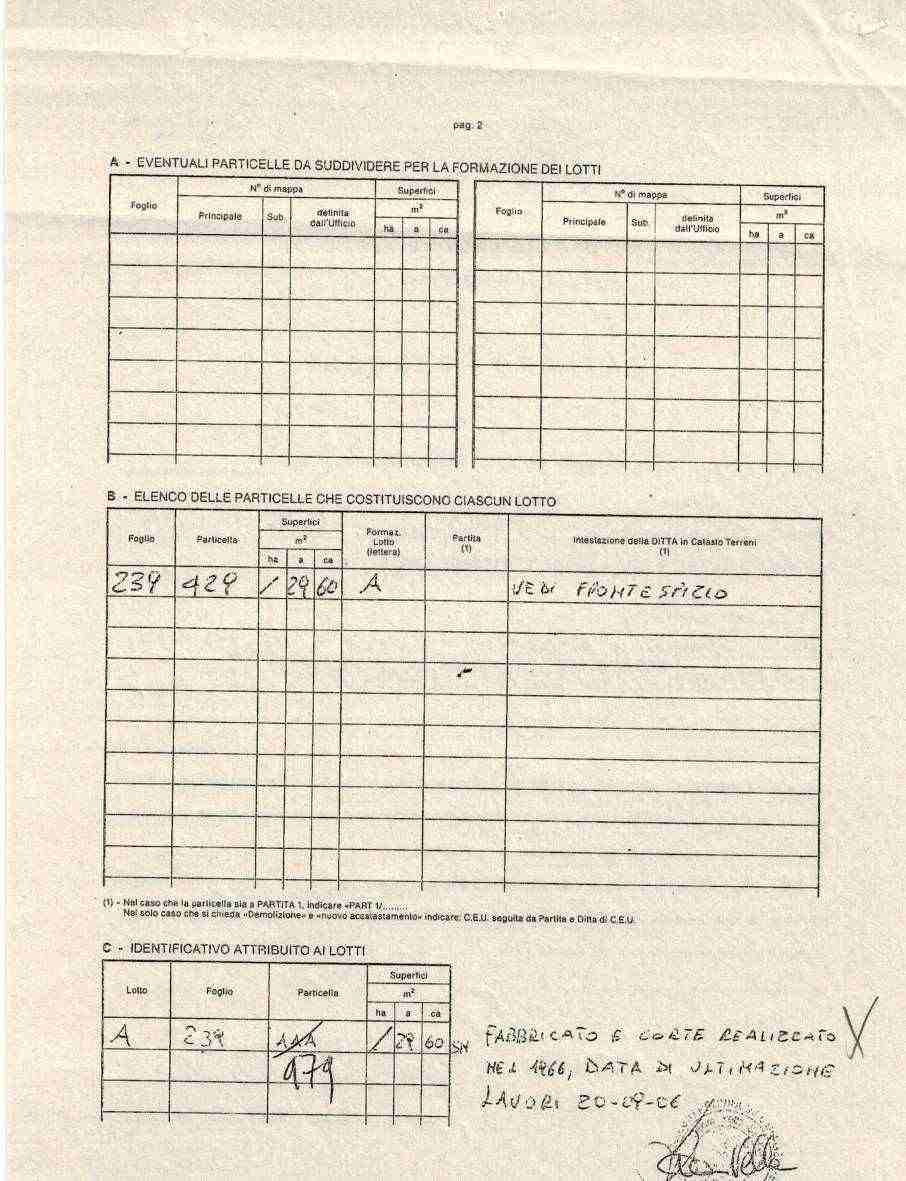 pag. 2
A - EVENTUALI PARTICELLE DA SUDDIVIDERE PER LA FORMAZIONE DEI LOTTI
Foglio N° di mappa Superfici Foglio N° di mappa Superfici
Principale Sub. definita dall'Ufficio m² Principale Sub. definita dall'Ufficio m²
ha a ca ha a ca
B - ELENCO DELLE PARTICELLE CHE COSTITUISCONO CIASCUN LOTTO
Foglio Particella Superfici Formaz. Lotto (lettera) Partita (1) Intestazione della DITTA in Catasto Terreni (1)
m²
ha a ca
239 429 / 29 60 A VEDI FRONTESPIZIO
(1) - Nel caso che la particella sia a PARTITA 1, indicare «PART 1/.........
Nel solo caso che si chieda «Demolizione» e «nuovo accatastamento» indicare: C.E.U. seguita da Partita e Ditta di C.E.U.
C - IDENTIFICATIVO ATTRIBUITO AI LOTTI
Lotto Foglio Particella Superfici
m²
ha a ca
A 239 AAA / 29 60 SN
979
FABBRICATO E CORTE REALIZZATO
NEL 1966, DATA DI ULTIMAZIONE
LAVORI 20-09-06